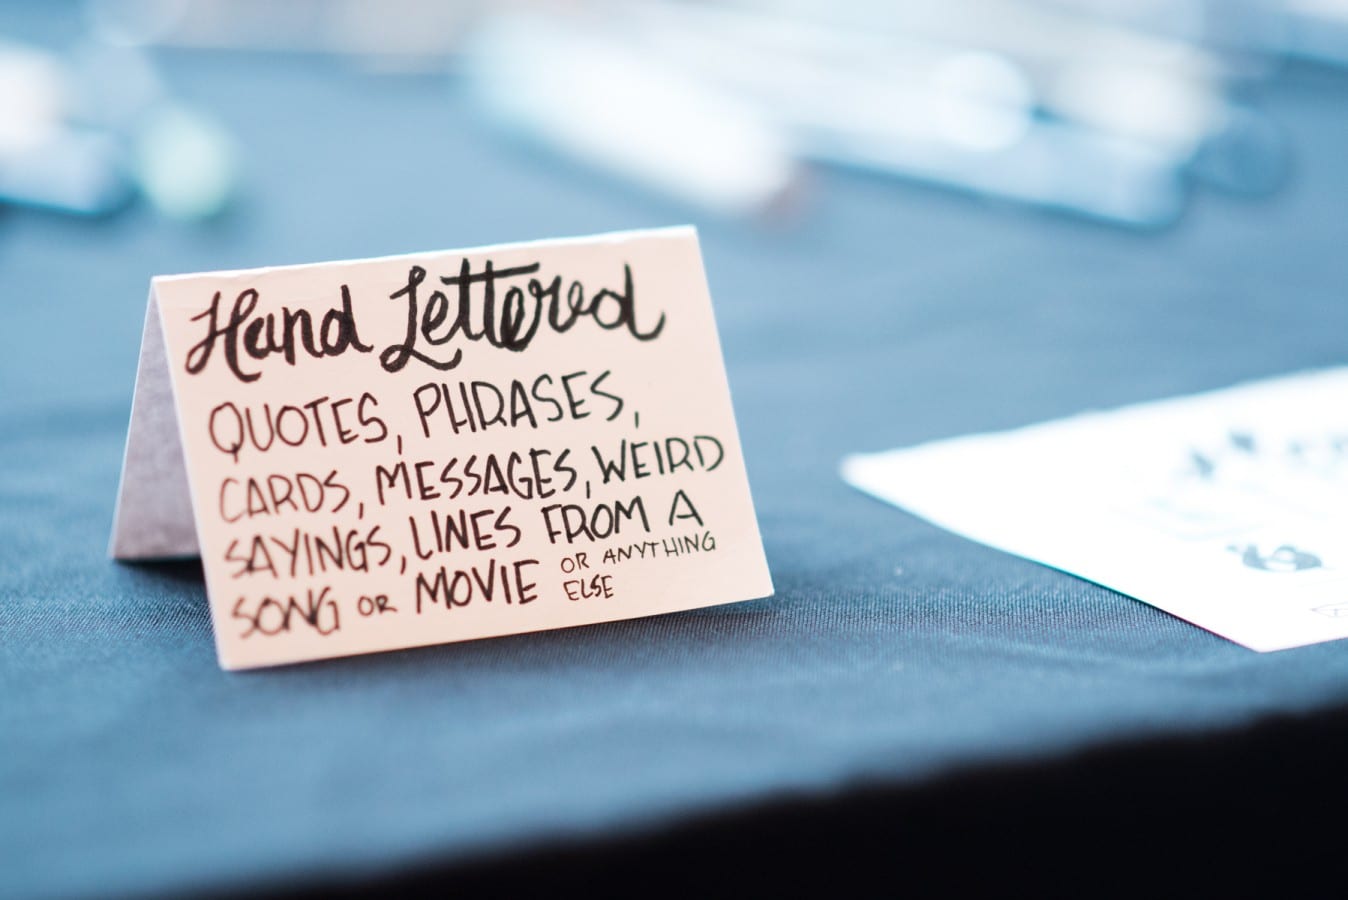 Hand Lettered
QUOTES, PHRASES,
CARDS, MESSAGES, WEIRD
SAYINGS, LINES FROM A
SONG OR MOVIE OR ANYTHING
ELSE